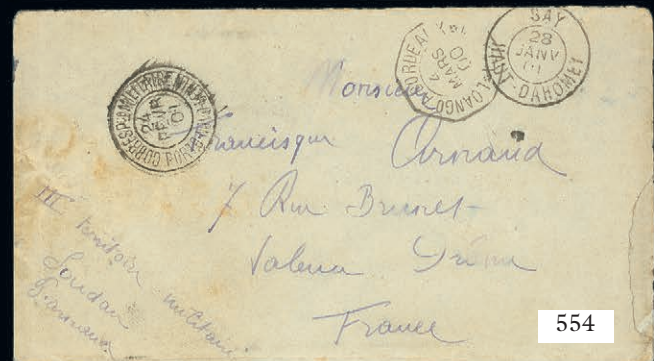 SAY
28
JANV
01
HAUT-DAHOMEY
LOANGO A BORDEAUX
4
MARS
CORRESP. MILIT.
PORTO-NOVO
24
FEVR
01
Monsieur
Francisque Arnaud
7 Rue Brunet
Valence Drôme
France
III territoire militaire
Soudan
F. Arnaud
554